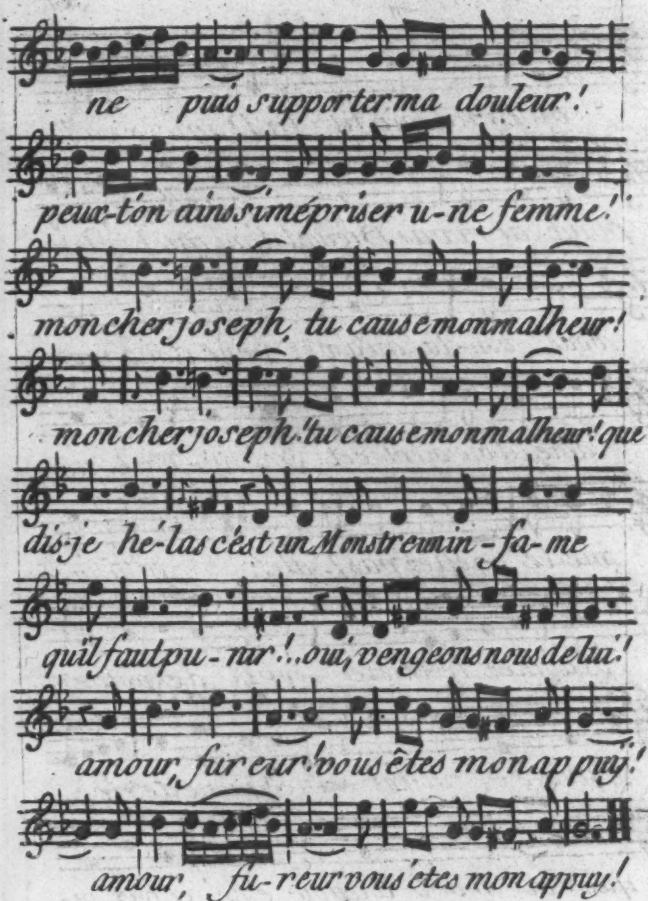 ne puis supporter ma douleur!
peux-tón ainsi simépriser u-ne femme!
mon cher joseph, tu cause mon malheur!
mon cher joseph! tu cause mon malheur! que
dis-je hé-las c'est un Monstre un in-fa-me
qu'il faut pu-nir!..oui, vengeons nous de lui!
amour, fureur! vous êtes mon appuÿ!
amour, fu-reur vous étes mon appuy!